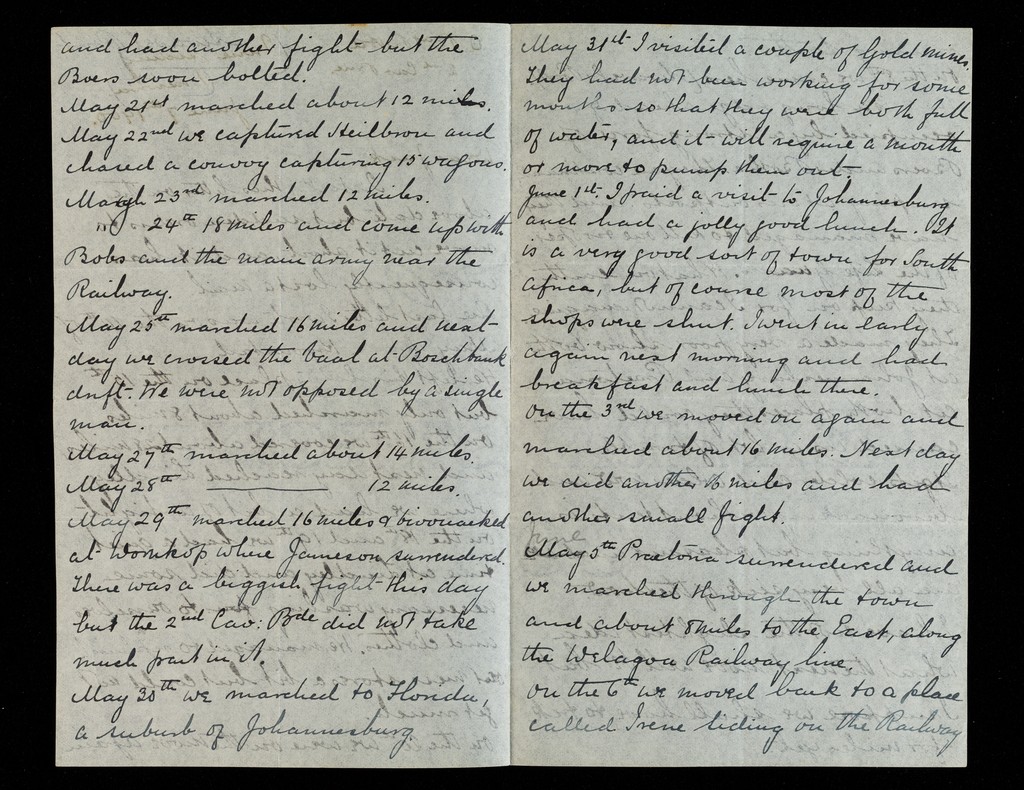 and had another fight but the
Boers soon bolted.
May 21st marched about 12 miles.
May 22nd we captured Heilbron and
chased a convoy capturing 15 wagons.
March 23rd marched 12 miles.
" 24th 18 miles and come up with
Bobs and the main army near the
Railway.
May 25th marched 16 miles and next
day we crossed the Vaal at Boschbank
drift. We were not opposed by a single
man.
May 27th marched about 14 miles.
May 28th ——— 12 miles.
May 29th marched 16 miles & bivouacked
at Doornkop where Jameson surrendered.
There was a biggish fight this day
but the 2nd Cav: Bde did not take
much part in it.
May 30th we marched to Florida,
a suburb of Johannesburg.
May 31st I visited a couple of Gold mines.
They had not been working for some
months so that they were both full
of water, and it will require a month
or more to pump them out.
June 1st. I paid a visit to Johannesburg
and had a jolly good lunch. It
is a very good sort of town for South
Africa, but of course most of the
shops were shut. I went in early
again next morning and had
breakfast and lunch there.
On the 3rd we moved on again and
marched about 16 miles. Next day
we did another 16 miles and had
another small fight.
June
May 5th Praetoria surrendered and
we marched through the town
and about 8 miles to the East, along
the Delagoa Railway line.
On the 6th we moved back to a place
called Irene siding on the Railway